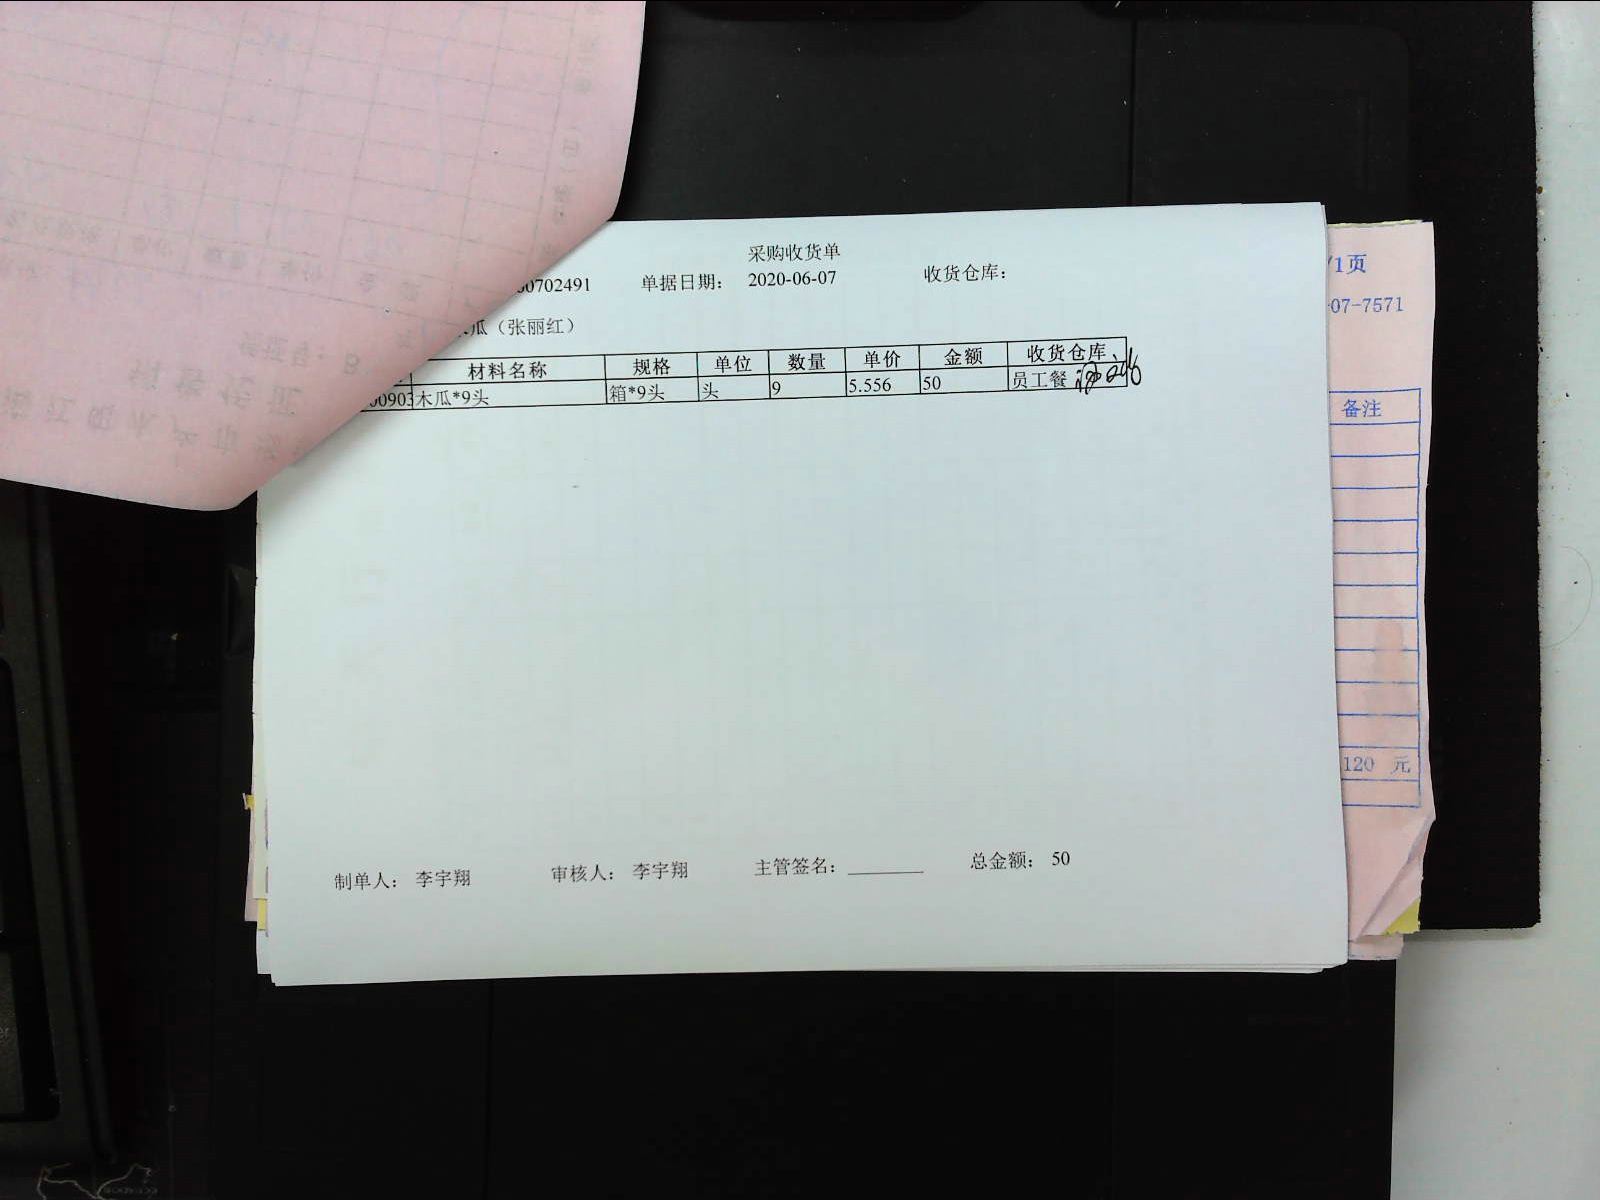 采购收货单
0702491 单据日期： 2020-06-07 收货仓库：
瓜（张丽红）
材料名称 规格 单位 数量 单价 金额 收货仓库
00903 木瓜*9头 箱*9头 头 9 5.556 50 员工餐
制单人： 李宇翔 审核人： 李宇翔 主管签名： 总金额： 50
/1页
07-7571
备注
120 元